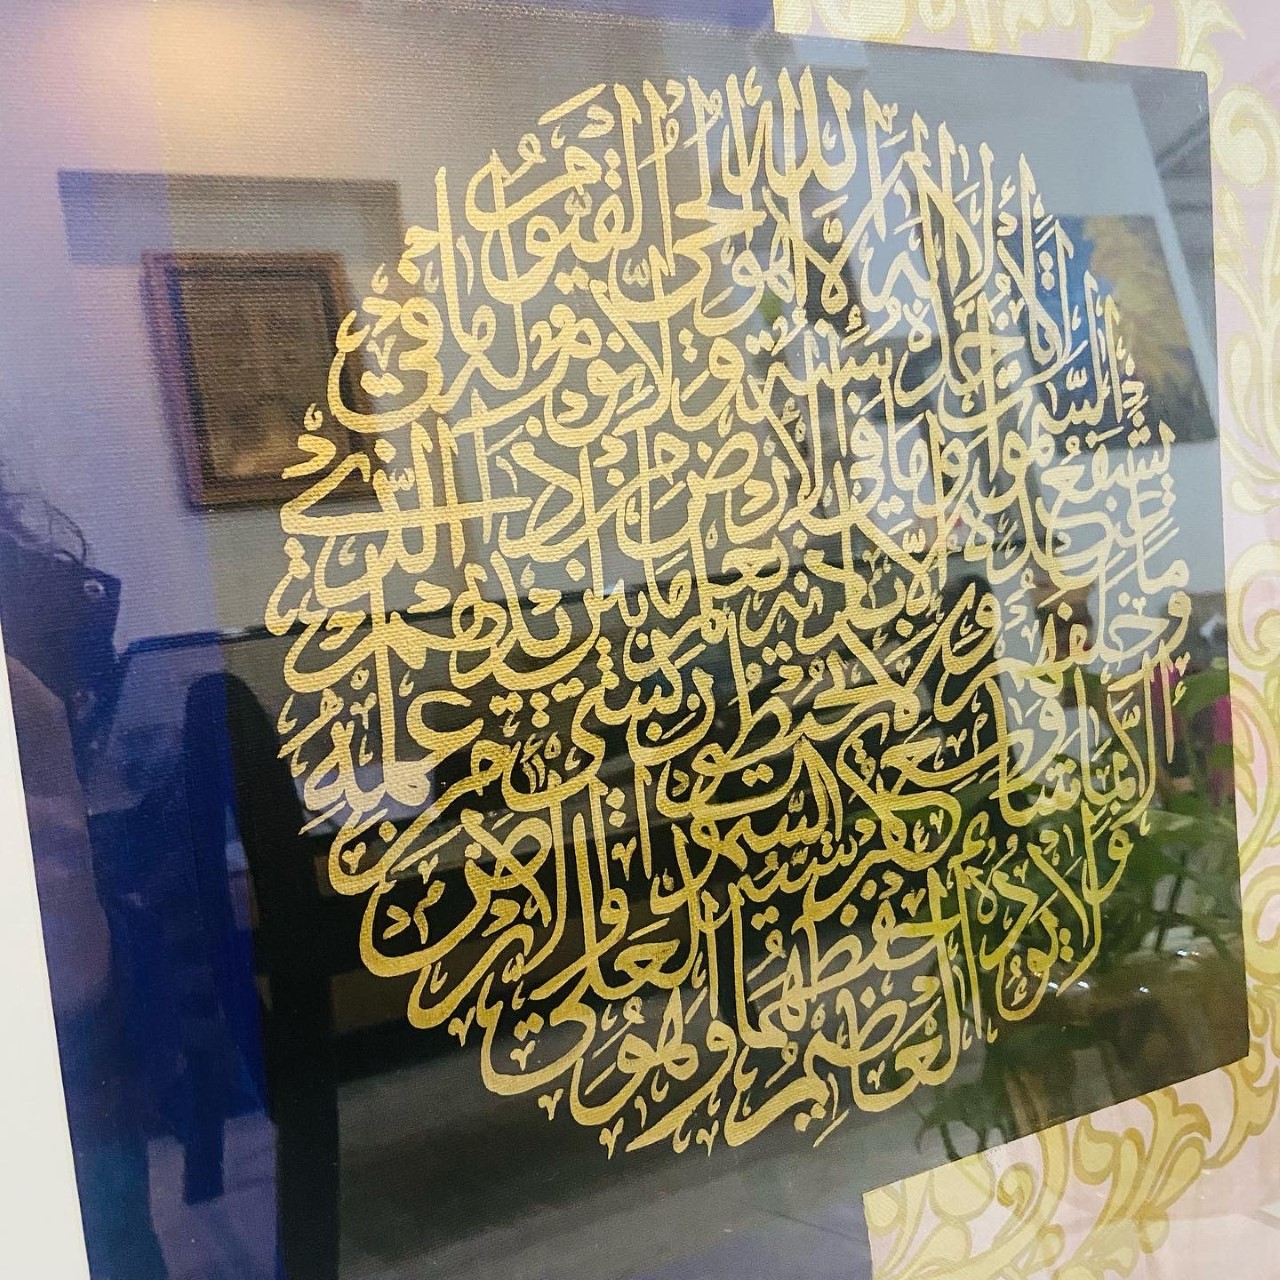 الله لا إله إلا هو الحي القيوم
لا تأخذه سنة ولا نوم له ما في
السموات وما في الأرض من ذا الذي
يشفع عنده إلا بإذنه يعلم ما بين أيديهم
وما خلفهم ولا يحيطون بشيء من علمه
إلا بما شاء وسع كرسيه السموات والأرض
ولا يؤده حفظهما وهو العلي
العظيم